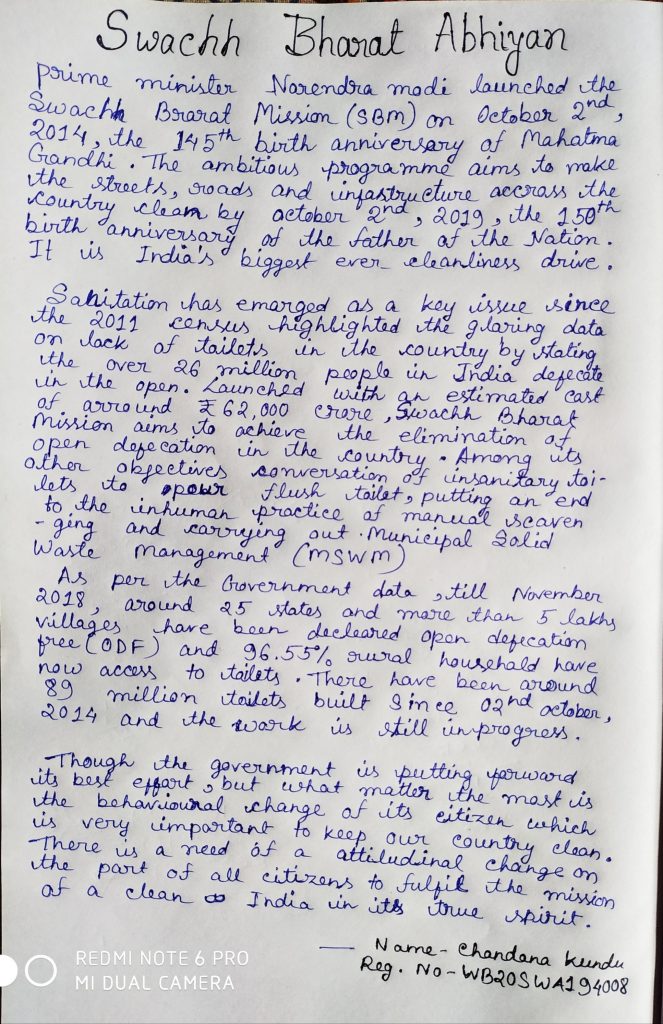 Swachh Bharat Abhiyan
prime minister Narendra modi launched the
Swachh Brarat Mission (SBM) on October 2nd,
2014, the 145th birth anniversary of Mahatma
Gandhi. The ambitious programme aims to make
the streets, roads and infastructure accrass the
country clean by october 2nd, 2019, the 150th
birth anniversary of the father of the Nation.
It is India's biggest ever cleanliness drive.
Sanitation has emarged as a key issue since
the 2011 census highlighted the glaring data
on lack of toilets in the country by stating
the over 26 million people in India defecate
in the open. Launched with an estimated cost
of arround ₹ 62,000 crore, Swachh Bharat
Mission aims to achieve the elimination of
open defecation in the country. Among its
other objectives conversation of insanitary toi-
lets to pour flush toilet, putting an end
to the inhuman practice of manual scaven
-ging and carrying out Municipal Solid
Waste Management (MSWM)
As per the Government data, till November
2018, around 25 states and more than 5 lakhs
villages have been decleared open defecation
free (ODF) and 96.55% rural household have
now access to toilets. There have been around
89 million toilets built Since 02nd october,
2014 and the work is still in progress.
Though the government is putting forward
its best effort, but what matter the most is
the behavioural change of its citizen which
is very important to keep our country clean.
There is a need of a attiludinal change on
the part of all citizens to fulfil the mission
of a clean India in its true spirit.
— Name- Chandana Kundu
Reg. No-WB20SWA194008
REDMI NOTE 6 PRO
MI DUAL CAMERA